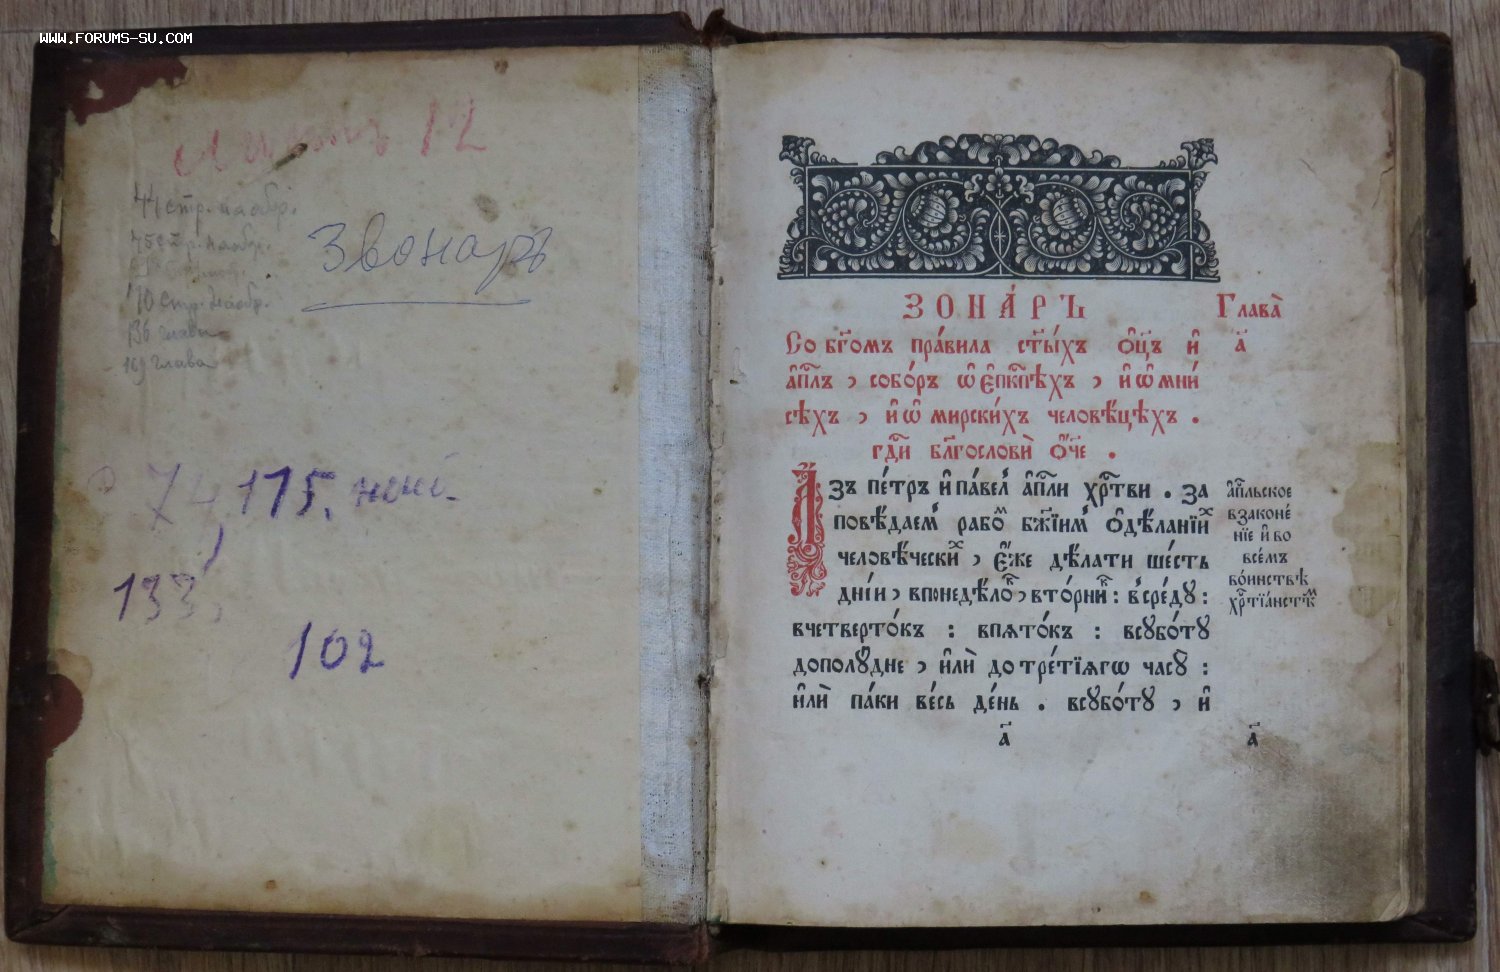 WWW.FORUMS-SU.COM
12
44 стр. на обр.
75 стр. на обр.
170 стр. на обр.
136 глава
169 глава
Звонаръ
74, 115,
133,
102
ЗОНА́РЪ
Глава̀
Со бг҃омъ пра́вила ст҃ы́хъ ѻ҆ц҃ъ и҆
а҃
а҆пⷭ҇лъ , собо́ръ ѡ҆ є҆пкⷭ҇пѣхъ , и҆ ѡ҆ мни
сѣхъ , и҆ ѡ҆ мирски́хъ человѣ́цѣхъ .
гдⷭ҇и бл҃гословѝ ѻ҆́ч҃е .
Азъ пе́тръ и҆ па́велъ а҆пⷭ҇ли хрⷭ҇тви . за
повѣ́даемъ рабоⷨ бж҃їимъ ѻ҆дѣ́ланїиⷯ
человѣ́ческиⷯ , є҆́же дѣ́лати ше́сть
дні́й , впонедѣ́лоⷦ , вто́рниⷦ : всре́дꙋ :
вчетверто́къ : впѧто́къ : всꙋбо́тꙋ
дополꙋ́дне , и҆лѝ до тре́тїѧгѡ часꙋ̀ :
и҆лѝ па́ки ве́сь де́нь . всꙋбо́тꙋ , и҆
а҆пⷭ҇льское
взаконе́
нїе и҆ во
все́мъ
во́инствѣ
хрⷭ҇тїа́нстѣⷨ
а҃
а҃